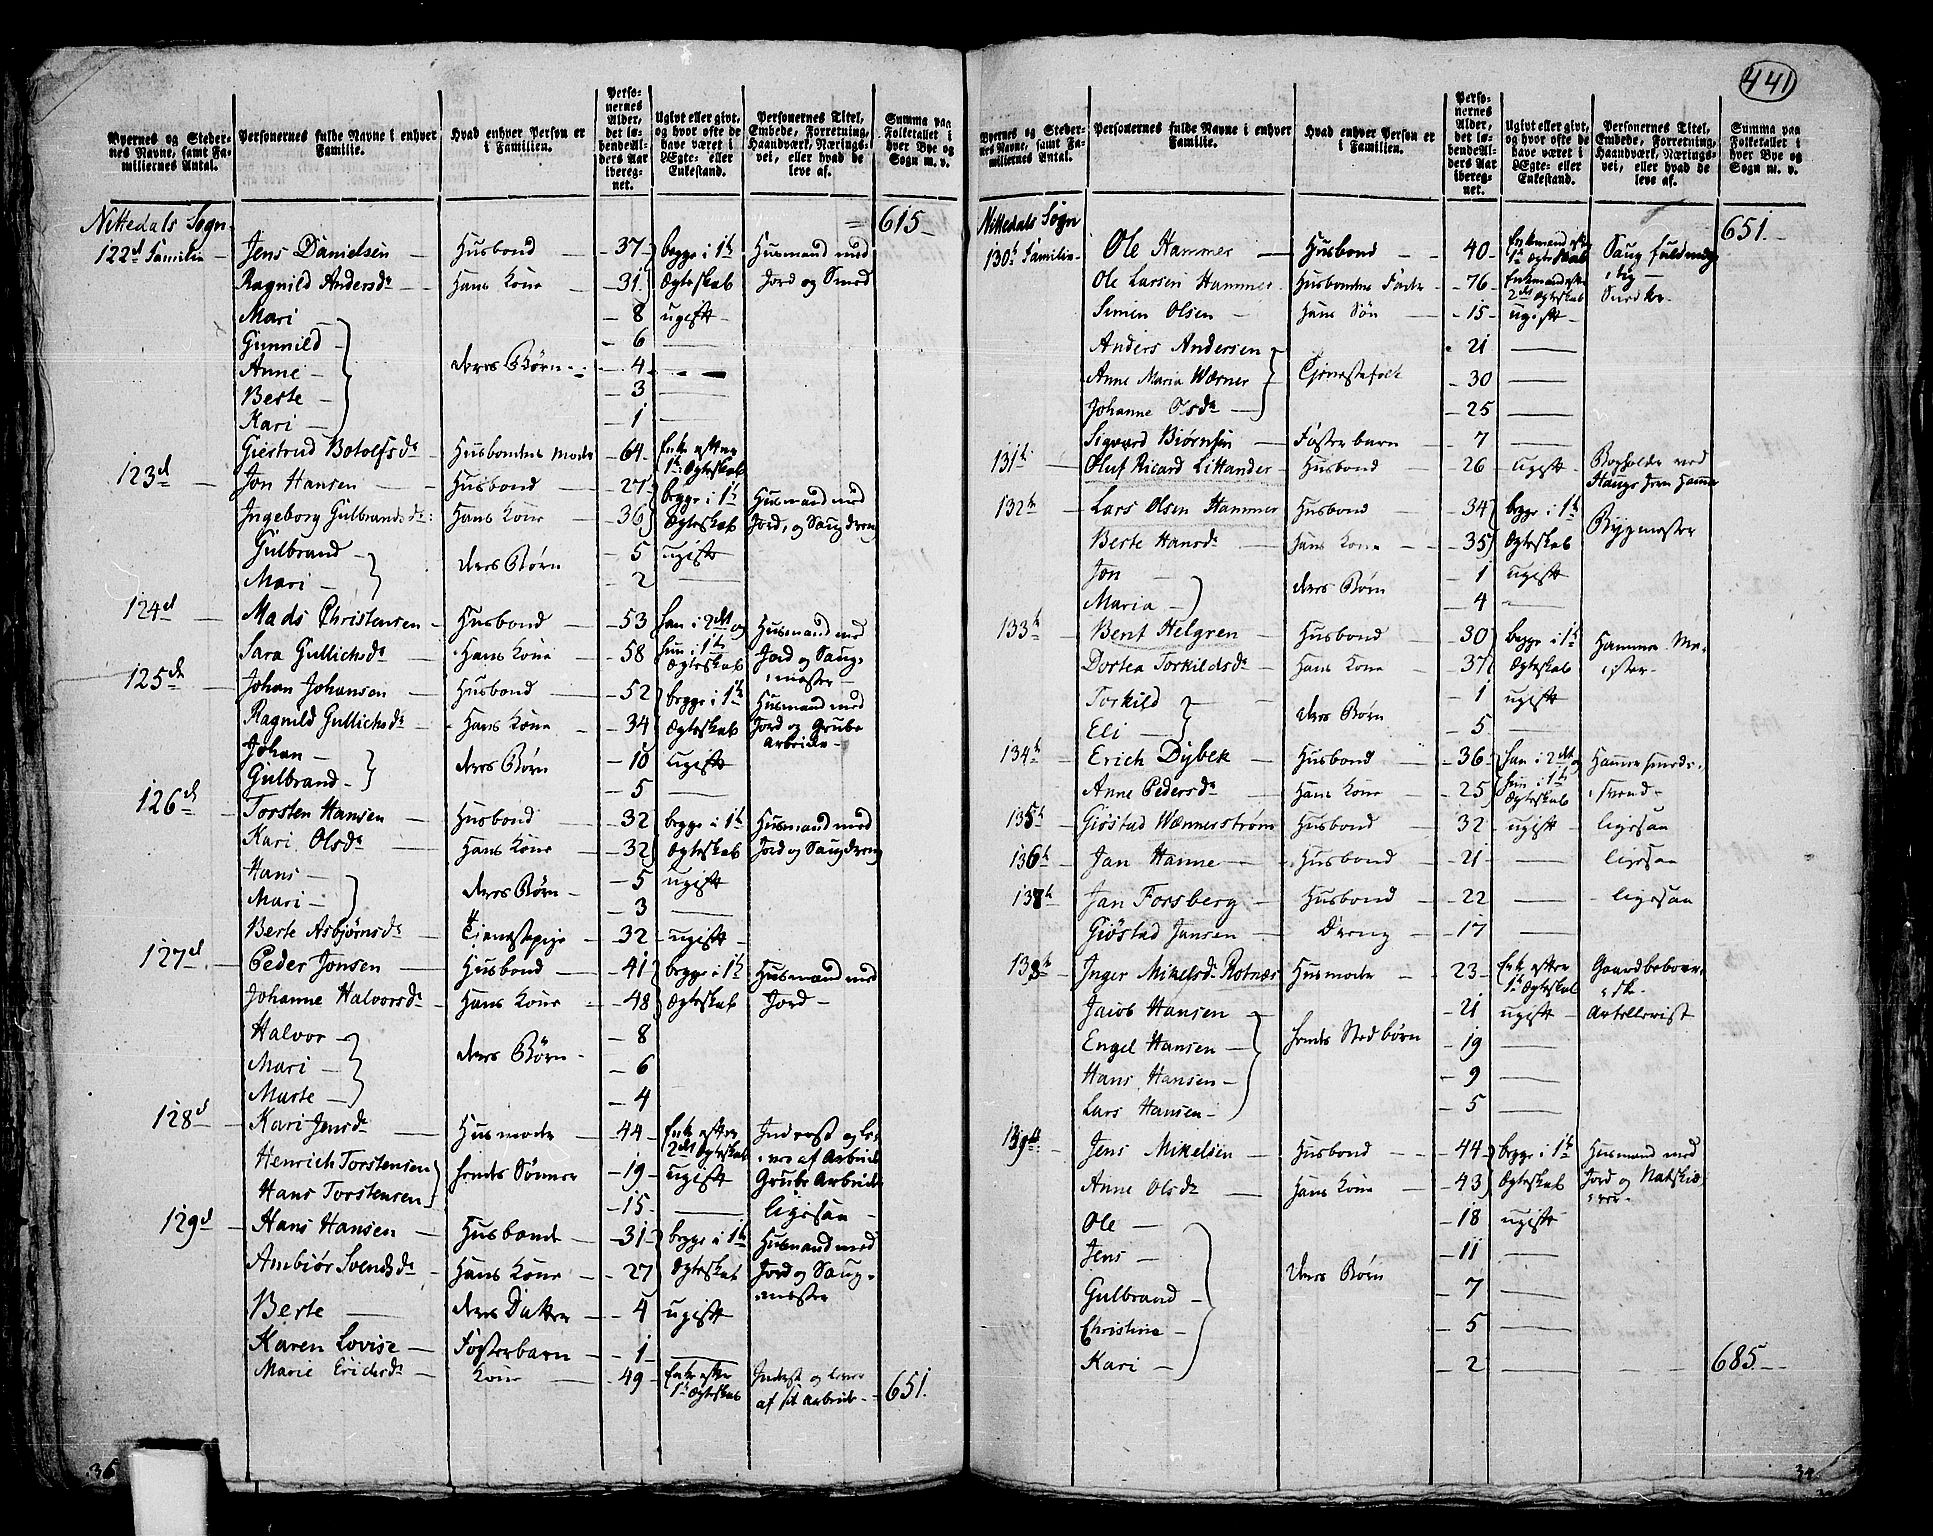 441
Byernes og Stedernes Navne, samt Familiernes Antal.
Personernes fulde Navne i enhver Familie.
Hvad enhver Person er i Familien.
Personernes Alder, det løbende Alders Aar iberegnet.
Ugivt eller givt, og hvor ofte de have været i Ægte- eller Enkestand.
Personernes Titel, Embede, Forretning, Haandværk, Næringsvei, eller hvad de leve af.
Summa paa Folketallet i hver Bye og Sogn m. v.
Nittedals Sogn 615
122d Familie Jens Danielsen Husbond 37 begge i 1te Husmand med
Ragnild Andersdr Hans Kone 31 Ægteskab Jord og Smed
Mari 8 ugift
Gunnild 6
Anne deres Børn 4
Berte 3
Kari 1
Giestrud Botolfsdr Husbondens Moder 64 Enke efter 1te Ægteskab
123d Jon Hansen Husbond 27 begge i 1te Husmand med
Ingeborg Gulbrandsdr Hans Kone 36 Ægteskab Jord, og Saugdreng
Gulbrand deres Børn 5 ugift
Mari 2
124d Mads Christensen Husbond 53 han i 2det og Husmand med
Sara Gullichsdr Hans Kone 58 hun i 1te Ægteskab Jord og Saugmester
125de Johan Johansen Husbond 52 begge i 1te Husmand med
Ragnild Gullichsdr Hans Kone 34 Ægteskab Jord og Grube Arbeider
Johan deres Børn 10 ugift
Gulbrand 5
126de Torsten Hansen Husbond 32 begge i 1te Husmand med
Kari Olsdr Hans Kone 32 Ægteskab Jord og Saugdreng
Hans deres Børn 5 ugift
Mari 3
Berte Asbjørnsdr Tienestepige 32 ugift
127d Peder Jonsen Husbond 41 begge i 1te Husmand med
Johanne Halvorsdr Hans Kone 48 Ægteskab Jord
Halvor 8
Mari deres Børn 6
Marte 4
128d Kari Jensdr Husmoder 44 Enke efter 2det Ægteskab Inderst og lever af Arbeide
Henrich Torstensen hendes Sønner 19 ugift Grube Arbeider
Hans Torstensen 15 ligesaa
129d Hans Hansen Husbonde 31 begge i 1te Husmand med
Ambiør Svendsdr Hans Kone 27 Ægteskab Jord og Saugmester
Berte deres Datter 4 ugift
Karen Lovise Fosterbarn 1
Marie Erichsdr Kone 49 Enke efter 1te Ægteskab Inderst og lever af sit Arbeide 651.
Byernes og Stedernes Navne, samt Familiernes Antal.
Personernes fulde Navne i enhver Familie.
Hvad enhver Person er i Familien.
Personernes Alder, det løbende Alders Aar iberegnet.
Ugivt eller givt, og hvor ofte de have været i Ægte- eller Enkestand.
Personernes Titel, Embede, Forretning, Haandværk, Næringsvei, eller hvad de leve af.
Summa paa Folketallet i hver Bye og Sogn m. v.
Nittedals Sogn 651.
130te Familie Ole Hammer Husbond 40 Enkemand efter 1te Ægteskab Saug fuldmægtig
Ole Larsen Hammer Husbondens Fader 76 Enkemand efter 2det Ægteskab Snedker
Simen Olsen Hans Søn 15 ugift
Anders Andersen 21
Anne Maria Wærner Tjenestefolk 30
Johanne Olsdr 25
Sigvard Biørnsen Fosterbarn 7
131te Oluf Ricard Littander Husbond 26 ugift Bogholder ved
132te Lars Olsen Hammer Husbond 34 begge i 1te Bygmester
Berte Hansdr Hans Kone 35 Ægteskab
Jon deres Børn 1 ugift
Maria 4
133te Bent Helgren Husbond 30 begge i 1te Hammer Mester
Dortea Torkildsdr Hans Kone 37 Ægteskab
Torkild deres Børn 1 ugift
Eli 5
134te Erich Dybek Husbond 36 han i 2det og Hammersmedsvend
Anne Pedersdr Hans Kone 25 hun i 1te Ægteskab
135te Giøstad Wænnerstrøm Husbond 32 ugift ligesaa
136te Jan Hanne Husbond 21 ligesaa
137te Jan Forsberg Husbond 22 ligesaa
Giøstad Jansen Dreng 17
138te Inger Mikelsdr Rotnæs Husmoder 23 Enke efter 1te Ægteskab Gaardbeboerske
Jacob Hansen 21 ugift Artellerist
Engel Hansen hendes Stedbørn 19
Hans Hansen 9
Lars Hansen 5
139de Jens Mikelsen Husbond 44 begge i 1te Husmand med
Anne Olsdr Hans Kone 43 Ægteskab Jord og
Ole 18 ugift
Jens 11
Gulbrand deres Børn 7
Christine 5
Kari 2 685.